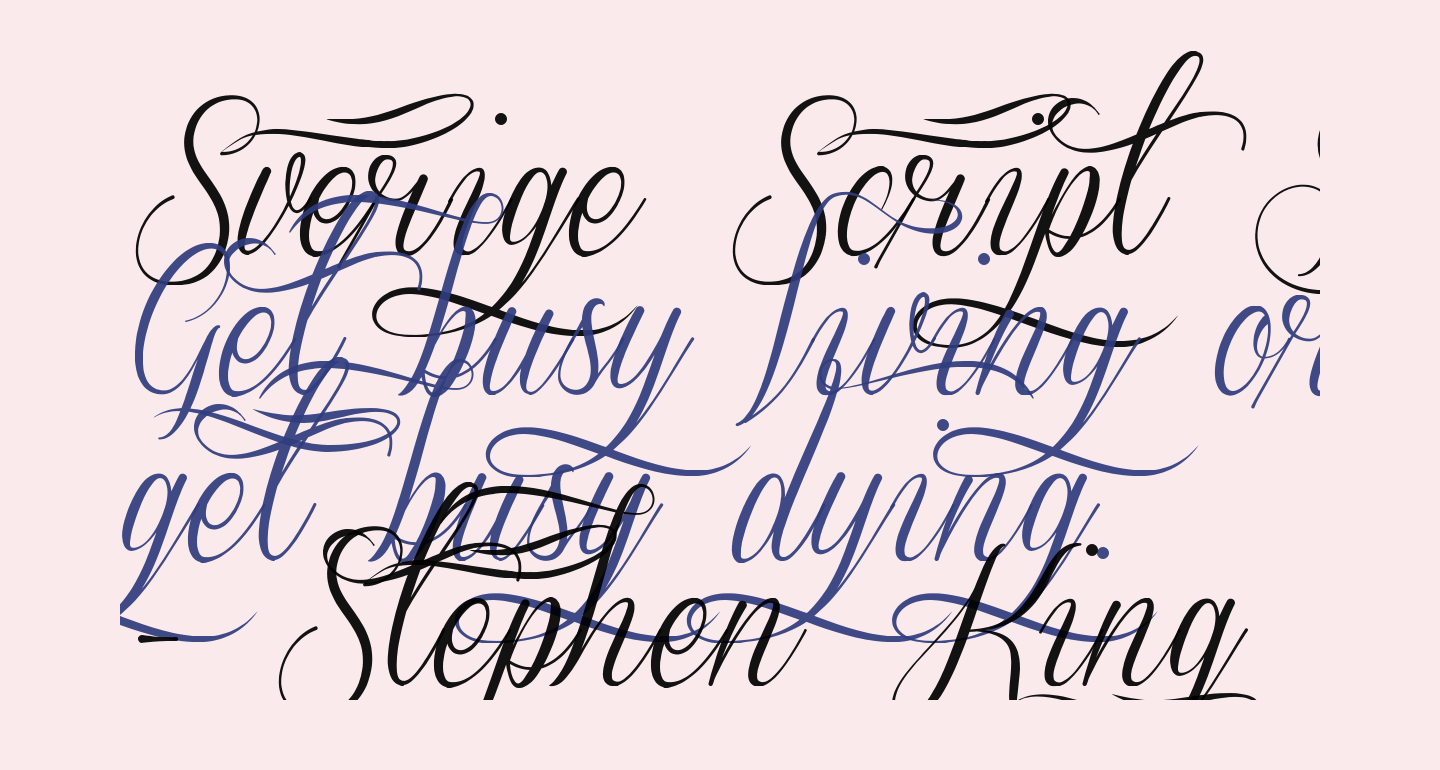 Sverige Script
Get busy living or
get busy dying.
- Stephen King